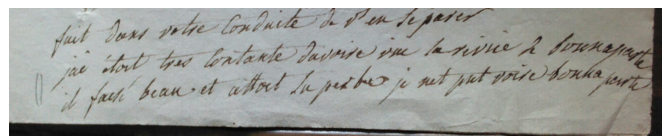 fait dans votre Conduite de vs en Separer
jai étoit tres Contante davoire vue la rivüe 2 bonnaparte
il faisé beau et aitoit Superbe je net put voire bonnaparte